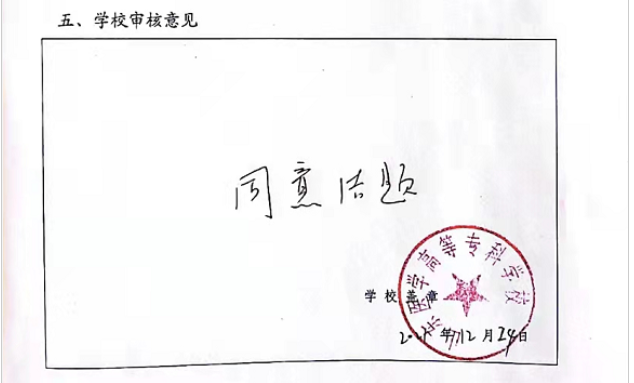 五、学校审核意见
同意结题
医学高等专科学校
学校盖章
年12月24日